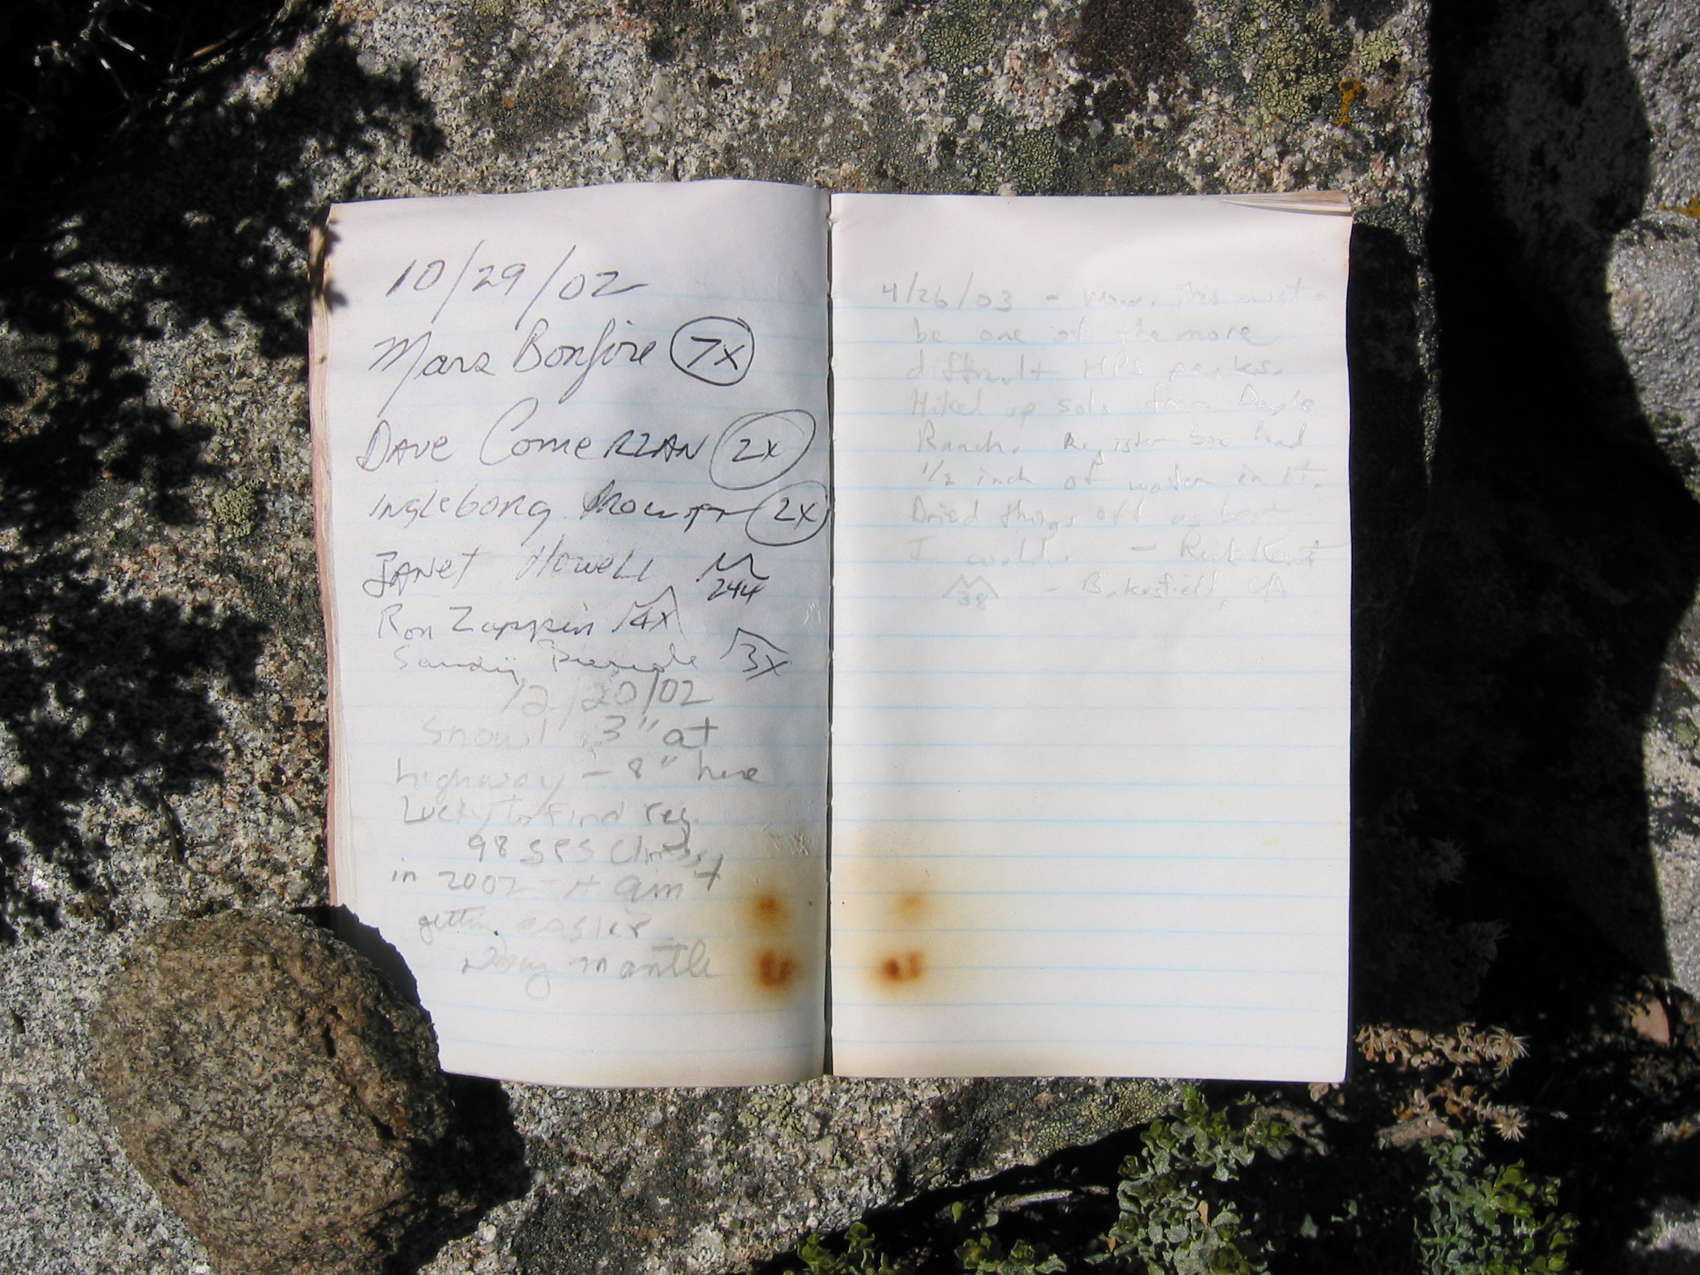 10/29/02
Mars Bonfire 7x
DAVE ComeRZAN 2x
Ingleborg 2x
JANET Howell 244
Ron Zappin 4x
Sandy 3x
12/20/02
Snow! 3" at
highway - 8" here
Lucky to find reg.
98 SPS climbs
in 2002 - it ain't
gettin easier
Doug Mantle
4/26/03 - Wow, this must
be one of the more
difficult HPS peaks.
Hiked up solo from
Ranch. Register box had
1/2 inch of water in it.
Dried things off as best
I could. -
38 - Bakersfield, CA